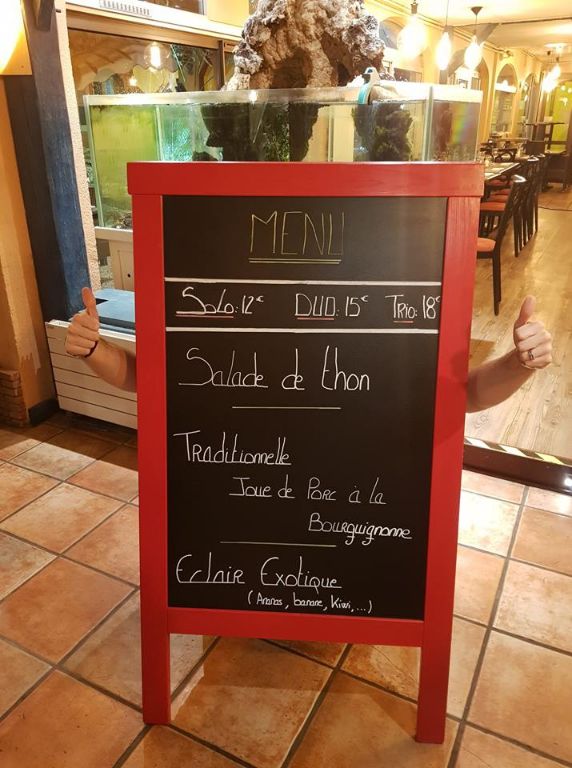 MENU
Solo: 12€ DUO: 15€ Trio: 18€
Salade de thon
Traditionnelle
Joue de Porc à la
Bourguignonne
Eclair Exotique
(Ananas, banane, Kiwi, ...)